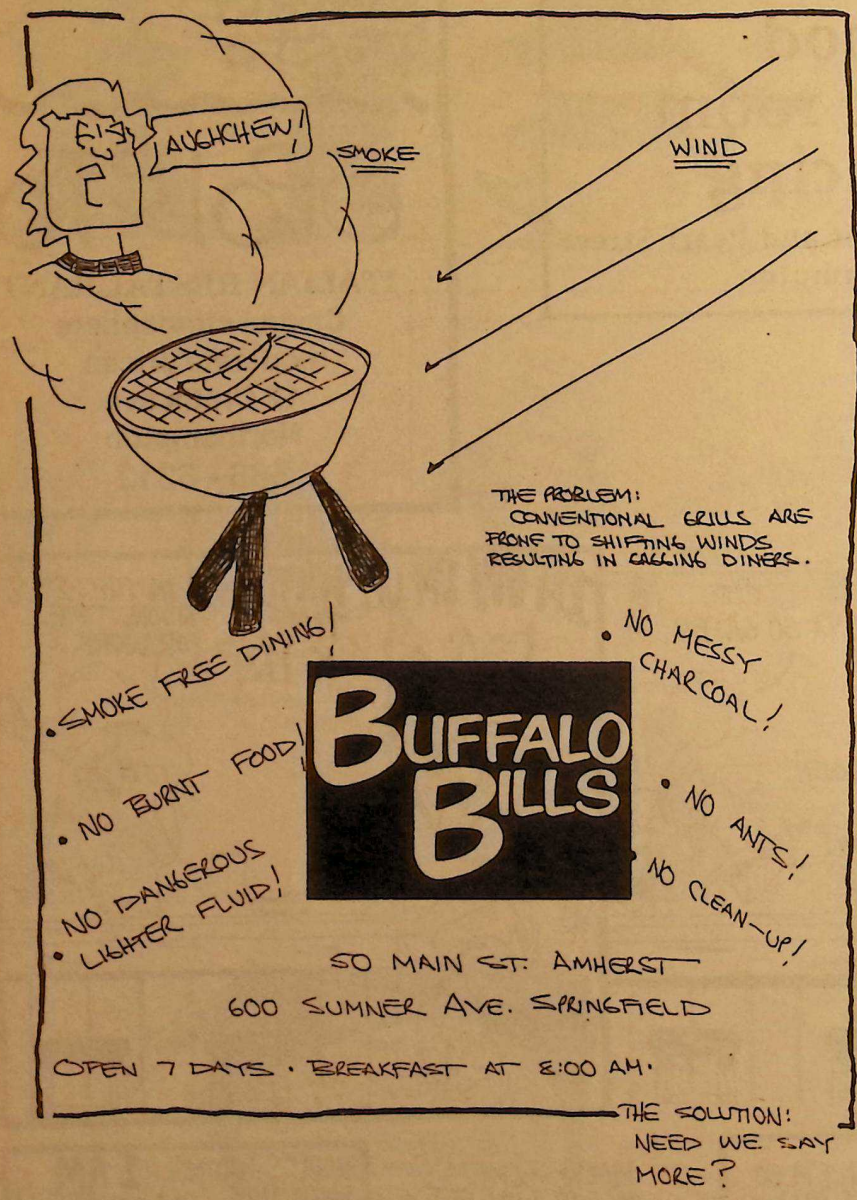 AUGHCHEW!
SMOKE
WIND
THE PROBLEM:
CONVENTIONAL GRILLS ARE
PRONE TO SHIFTING WINDS
RESULTING IN GAGGING DINERS.
• SMOKE FREE DINING!
• NO BURNT FOOD!
NO DANGEROUS
• LIGHTER FLUID!
BUFFALO
BILLS
• NO MESSY
CHARCOAL!
• NO ANTS!
• NO CLEAN-UP!
50 MAIN ST. AMHERST
600 SUMNER AVE. SPRINGFIELD
OPEN 7 DAYS · BREAKFAST AT 8:00 AM.
THE SOLUTION:
NEED WE SAY
MORE?